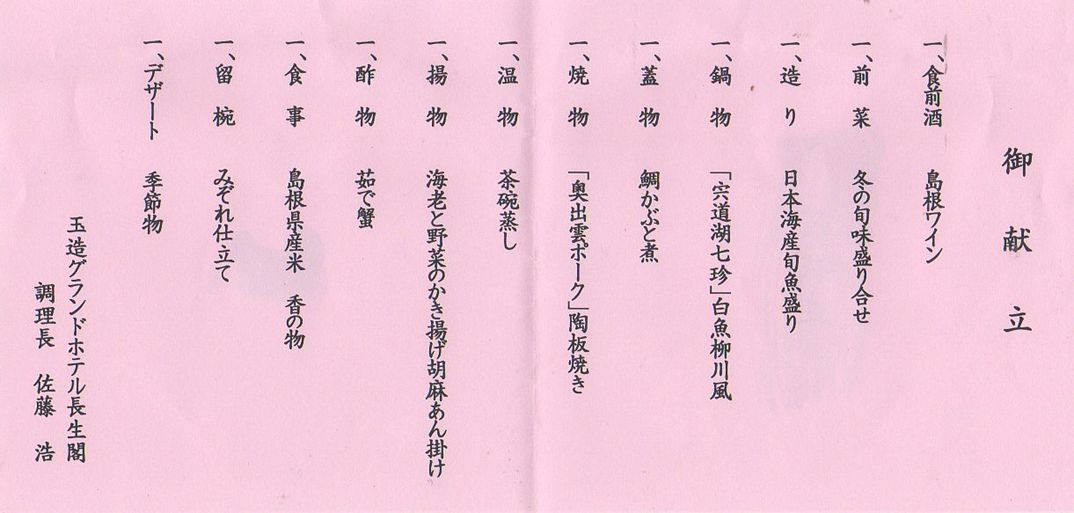 御献立
一、食前酒　島根ワイン
一、前菜　冬の旬味盛り合せ
一、造り　日本海産旬魚盛り
一、鍋物　「宍道湖七珍」白魚柳川風
一、蓋物　鯛かぶと煮
一、焼物　「奥出雲ポーク」陶板焼き
一、温物　茶碗蒸し
一、揚物　海老と野菜のかき揚げ胡麻あん掛け
一、酢物　茹で蟹
一、食事　島根県産米　香の物
一、留椀　みぞれ仕立て
一、デザート　季節物
玉造グランドホテル長生閣
調理長　佐藤　浩